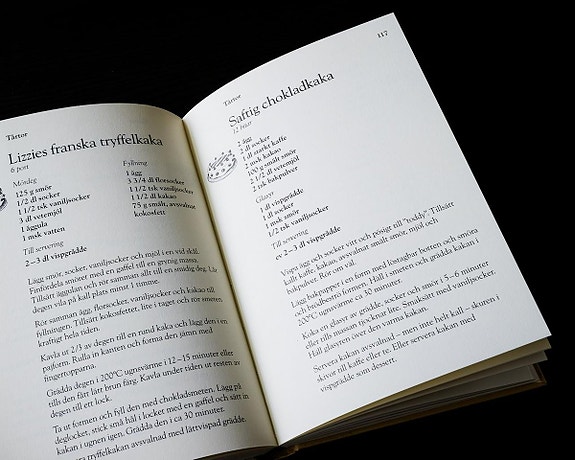 Tårtor
Lizzies franska tryffelkaka
6 port
Mördeg
125 g smör
1/2 dl socker
1 1/2 tsk vaniljsocker
3 dl vetemjöl
1 äggula
1 msk vatten
Fyllning
1 ägg
3 3/4 dl florsocker
1 1/2 tsk vaniljsocker
1 1/2 dl kakao
75 g smält, avsvalnat
kokosfett
Till servering
2–3 dl vispgrädde
Lägg smör, socker, vaniljsocker och mjöl i en vid skål.
Finfördela smöret med en gaffel till en grynig massa.
Tillsätt äggulan och rör samman allt till en smidig deg. Låt
degen vila på kall plats minst 1 timme.
Rör samman ägg, florsocker, vaniljsocker och kakao till
fyllningen. Tillsätt kokosfettet, lite i taget och rör smeten
kraftigt hela tiden.
Kavla ut 2/3 av degen till en rund kaka och lägg den i en
pajform. Rulla in kanten och forma den jämn med
fingertopparna.
Grädda degen i 200°C ugnsvärme i 12–15 minuter eller
tills den fått lätt brun färg. Kavla under tiden ut resten av
degen till ett lock.
Ta ut formen och fyll den med chokladsmeten. Lägg på
deglocket, stick små hål i locket med en gaffel och sätt in
kakan i ugnen igen. Grädda den i ca 30 minuter.
tryffelkakan avsvalnad med lättvispad grädde.
117
Tårtor
Saftig chokladkaka
12 bitar
2 ägg
2 dl socker
1 dl starkt kaffe
2 msk kakao
100 g smält smör
2 1/2 dl vetemjöl
2 tsk bakpulver
Glasyr
1 dl vispgrädde
1 dl socker
1 msk smör
1/2 tsk vaniljsocker
Till servering
ev 2–3 dl vispgrädde
Vispa ägg och socker vitt och pösigt till "toddy". Tillsätt
kallt kaffe, kakao, avsvalnat smält smör, mjöl och
bakpulver. Rör om väl.
Lägg bakpapper i en form med löstagbar botten och smöra
och brödbeströ formen. Häll i smeten och grädda kakan i
200°C ugnsvärme ca 30 minuter.
Koka en glasyr av grädde, socker och smör i 5–6 minuter
eller tills massan tjocknar lite. Smaksätt med vaniljsocker.
Häll glasyren över den varma kakan.
Servera kakan avsvalnad – men inte helt kall – skuren i
skivor till kaffe eller te. Eller servera kakan med
vispgrädde som dessert.